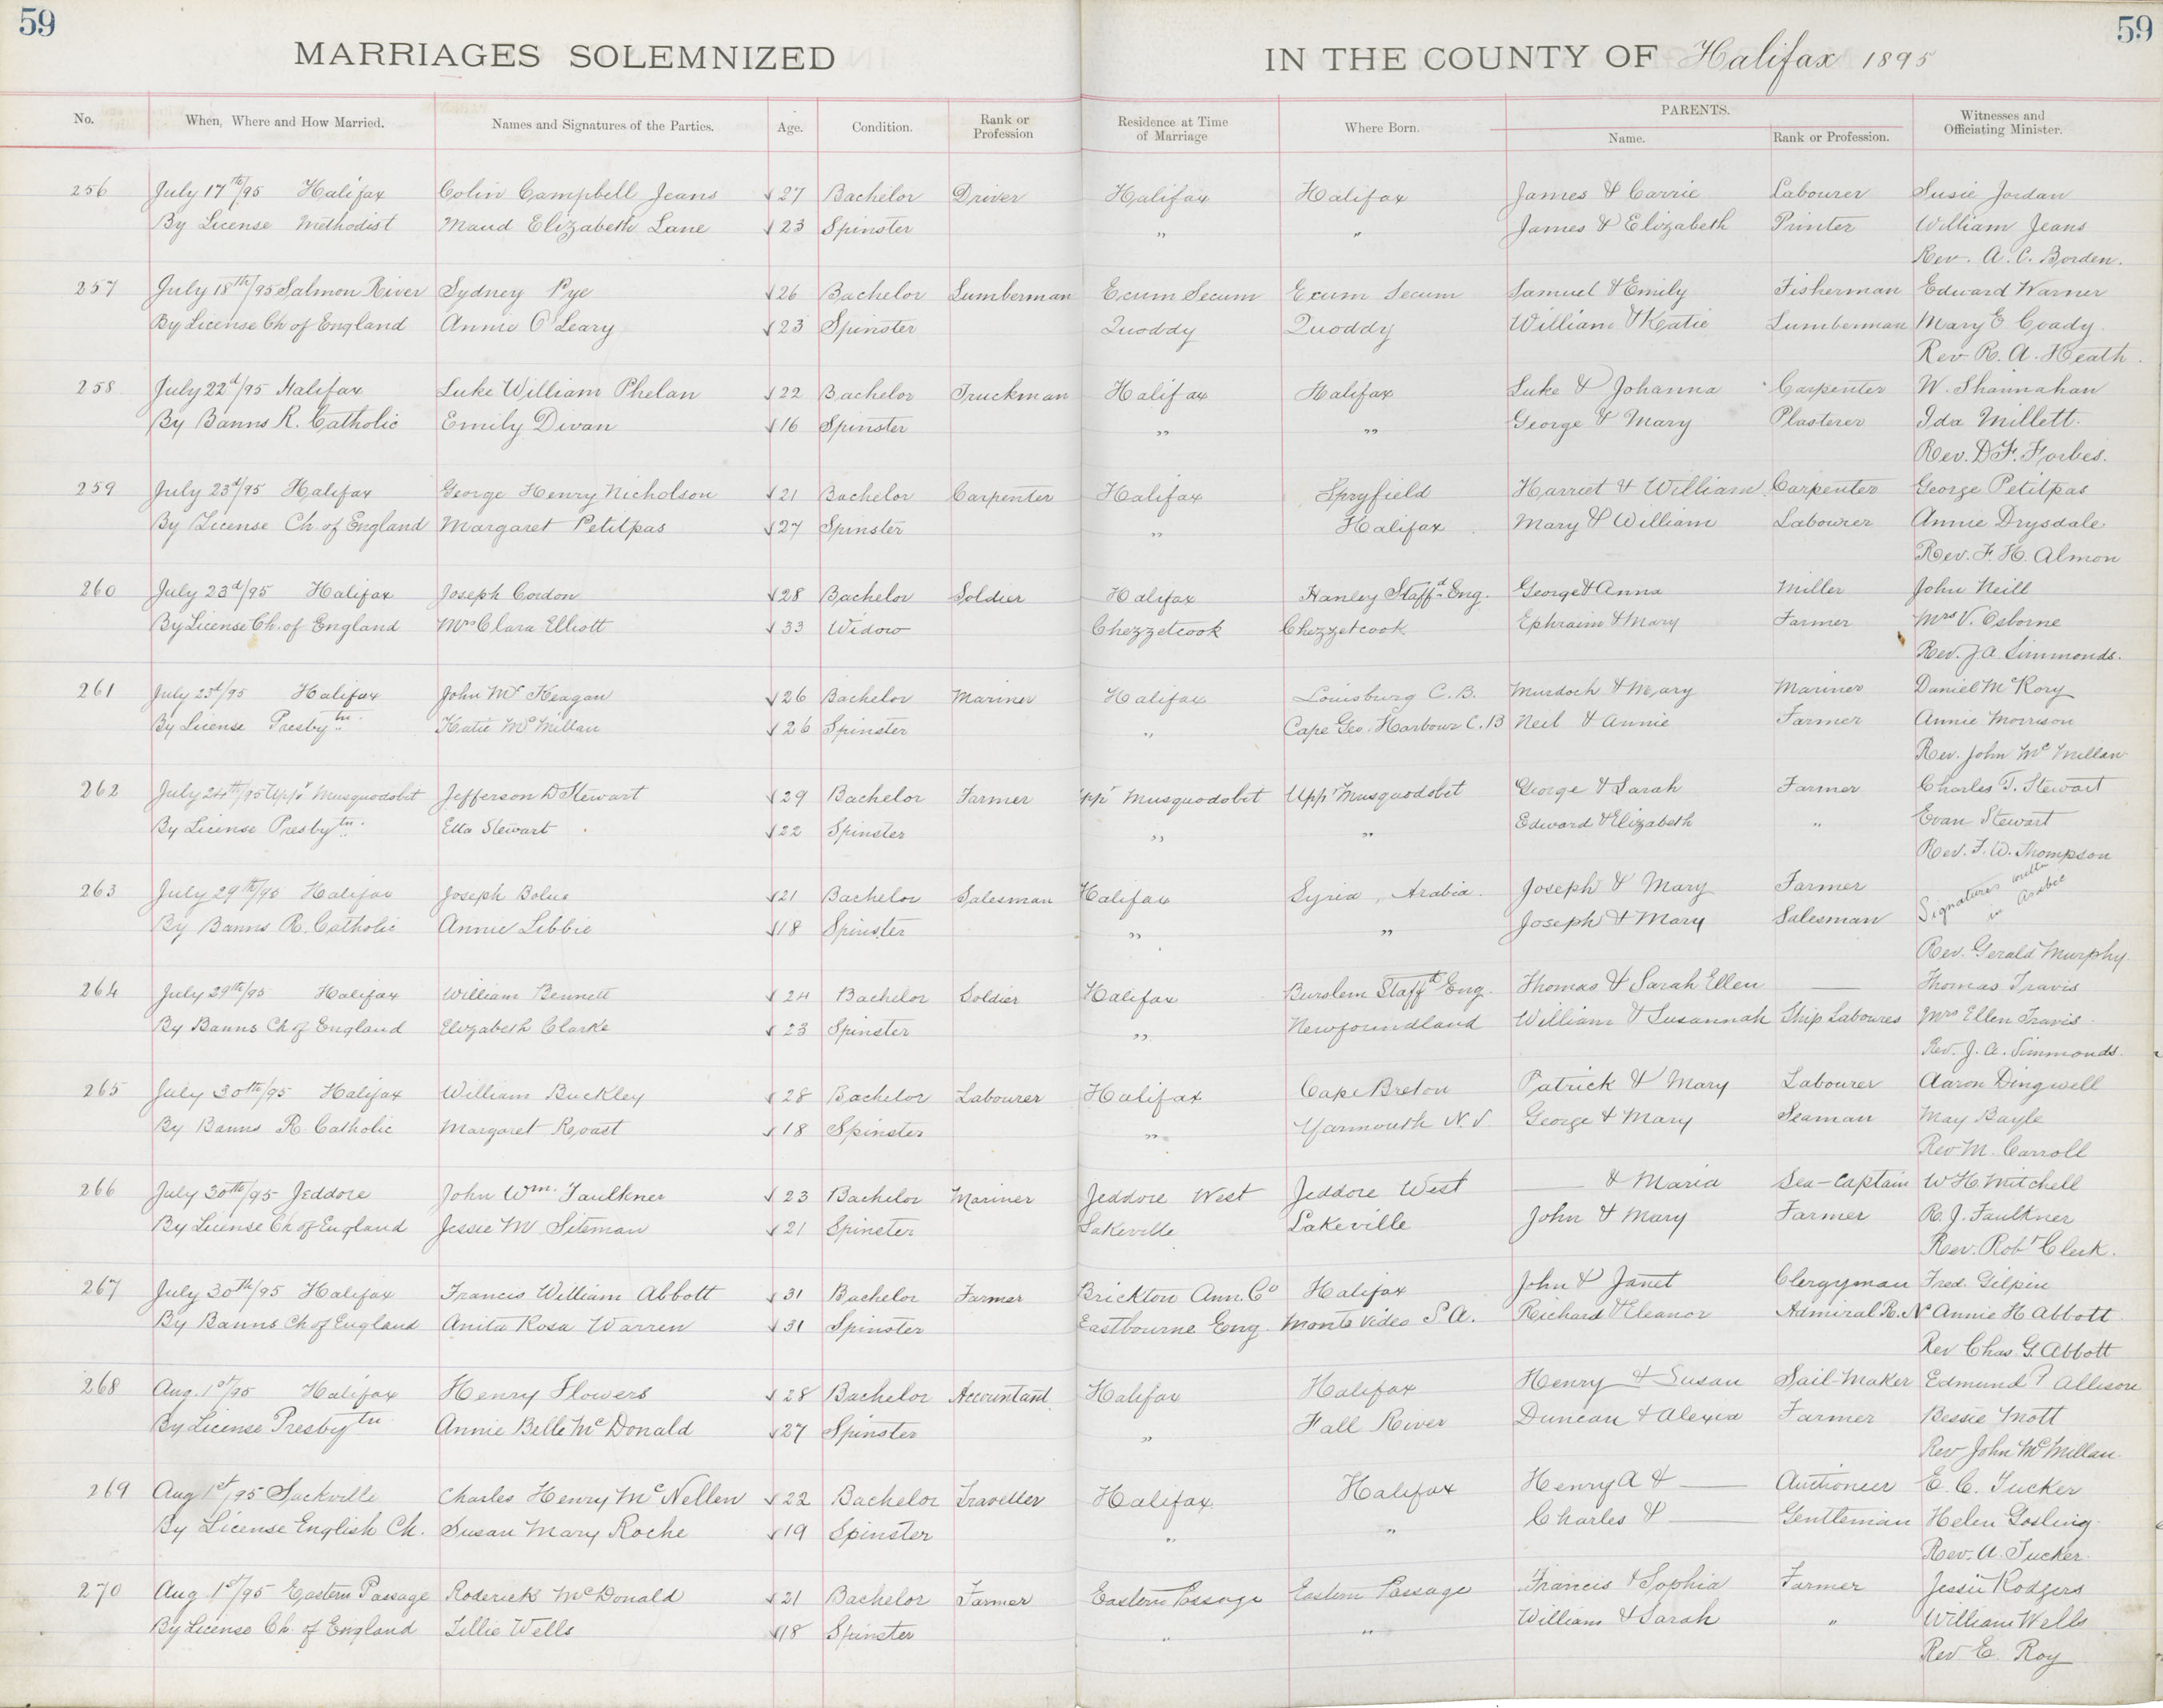 59
59
MARRIAGES SOLEMNIZED IN THE COUNTY OF Halifax 1895
No. When, Where and How Married. Names and Signatures of the Parties. Age. Condition. Rank or Profession Residence at Time of Marriage Where Born. PARENTS. Name. Rank or Profession. Witnesses and Officiating Minister.
256 July 17th/95 Halifax Colin Campbell Jeans 27 Bachelor Driver Halifax Halifax James & Carrie Labourer Susie Jordan
By License Methodist Maud Elizabeth Lane 23 Spinster " " James & Elizabeth Printer William Jeans
Rev. A. C. Borden.
257 July 18th/95 Salmon River Sydney Pye 26 Bachelor Lumberman Ecum Secum Ecum Secum Samuel & Emily Fisherman Edward Warner
By License Ch of England Annie O'Leary 23 Spinster Quoddy Quoddy William & Katie Lumberman Mary E Coady.
Rev R. A. Heath.
258 July 22d/95 Halifax Luke William Phelan 22 Bachelor Truckman Halifax Halifax Luke & Johanna Carpenter W. Shannahan
By Banns R. Catholic Emily Divan 16 Spinster " " George & Mary Plasterer Ida Millett.
Rev. D.F. Forbes.
259 July 23d/95 Halifax George Henry Nicholson 21 Bachelor Carpenter Halifax Spryfield Harriet & William Carpenter George Petitpas
By License Ch. of England Margaret Petitpas 27 Spinster " Halifax Mary & William Labourer Annie Drysdale
Rev. F. H. Almon
260 July 23d/95 Halifax Joseph Cordon 28 Bachelor Soldier Halifax Hanley Staffd Eng. George & Anna Miller John Neill
By License Ch. of England Mrs Clara Elliott 33 Widow Chezzetcook Chezzetcook Ephraim & Mary Farmer Mrs V. Osborne
Rev. J A. Simmonds.
261 July 23d/95 Halifax John Mc Keagan 26 Bachelor Mariner Halifax Louisburg C. B. Murdoch & Mary Mariner Daniel McRory
By License Presbytn. Katie McMillan 26 Spinster " Cape Geo. Harbour C. B Neil & Annie Farmer Annie Morrison
Rev. John McMillan
262 July 24th/95 Uppr Musquodobit Jefferson D Stewart 29 Bachelor Farmer Uppr Musquodobit Uppr Musquodobit George & Sarah Farmer Charles T. Stewart
By License Presbytn. Etta Stewart 22 Spinster " " Edward & Elizabeth " Evan Stewart
Rev. F. W. Thompson
263 July 29th/95 Halifax Joseph Bolus 21 Bachelor Salesman Halifax Syria, Arabia. Joseph & Mary Farmer Signatures written
By Banns R. Catholic Annie Libbie 18 Spinster " " Joseph & Mary Salesman in Arabic
Rev. Gerald Murphy.
264 July 29th/95 Halifax William Bennett 24 Bachelor Soldier Halifax Burslem Staffd Eng. Thomas & Sarah Ellen — Thomas Travis
By Banns Ch of England Elizabeth Clarke 23 Spinster " Newfoundland William & Susannah Ship Labourer Mrs Ellen Travis.
Rev. J. A. Simmonds.
265 July 30th/95 Halifax William Buckley 28 Bachelor Labourer Halifax Cape Breton Patrick & Mary Labourer Aaron Dingwell
By Banns R. Catholic Margaret Roast 18 Spinster " Yarmouth N. S. George & Mary Seaman May Bayle
Rev M. Carroll
266 July 30th/95 Jeddore John Wm. Faulkner 23 Bachelor Mariner Jeddore West Jeddore West — & Maria Sea-Captain W H. Mitchell
By License Ch of England Jessie M Siteman 21 Spinster Lakeville Lakeville John & Mary Farmer R. J. Faulkner
Rev. Robt Clerk.
267 July 30th/95 Halifax Francis William Abbott 31 Bachelor Farmer Brickton Ann. Co Halifax John & Janet Clergyman Fred. Gilpin
By Banns Ch of England Anita Rosa Warren 31 Spinster Eastbourne Eng. Monte Video S A. Richard & Eleanor Admiral R. N. Annie H Abbott
Rev Chas. G. Abbott
268 Aug. 1st/95 Halifax Henry Flowers 28 Bachelor Accountant. Halifax Halifax Henry & Susan Sail-Maker Edmund Allison
By License Presbytn Annie Belle McDonald 27 Spinster " Fall River Duncan & Alexia Farmer Bessie Mott
Rev John McMillan.
269 Aug 1st/95 Sackville Charles Henry McNellen 22 Bachelor Traveller Halifax Halifax Henry A & — Auctioneer E. C. Tucker
By License English Ch. Susan Mary Roche 19 Spinster " " Charles & — Gentleman Helen Gosling
Rev. A. Tucker
270 Aug 1st/95 Eastern Passage Roderick McDonald 21 Bachelor Farmer Eastern Passage Eastern Passage Francis & Sophia Farmer Jessie Rodgers
By License Ch. of England Lillie Wells 18 Spinster " " William & Sarah " William Wells
Rev E. Roy